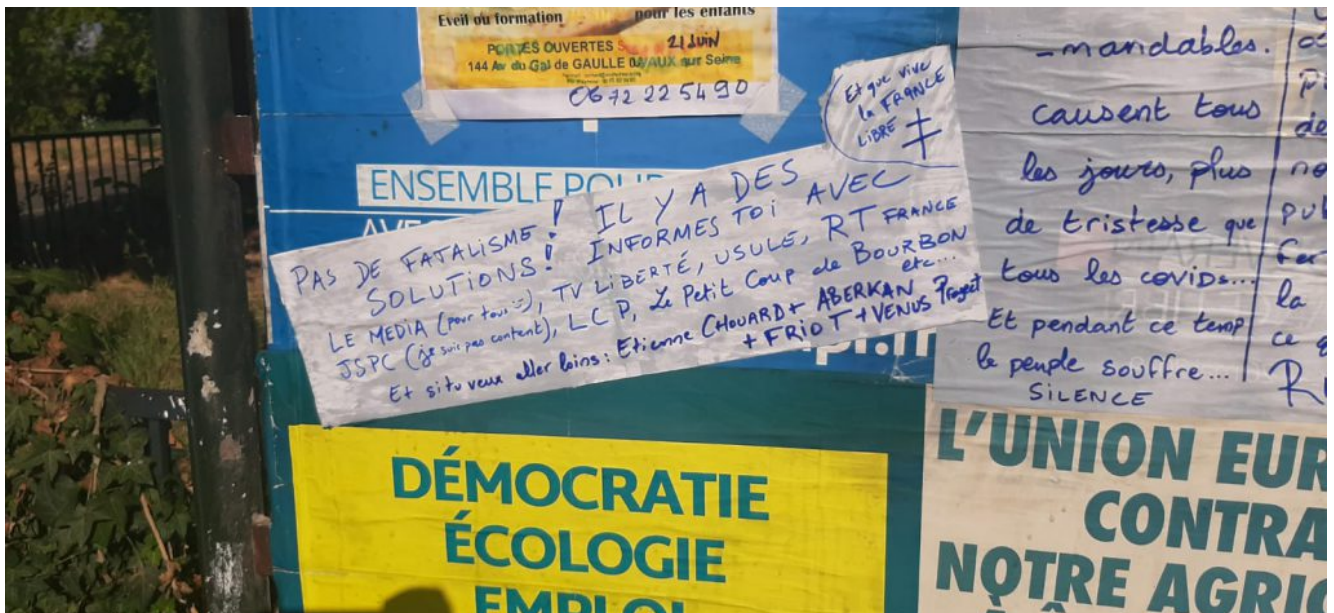 Eveil ou formation pour les enfants
PORTES OUVERTES 21 JUIN
144 Av du Gal de GAULLE VAUX sur Seine
06 72 22 54 90
Et que vive
la FRANCE
LIBRE
ENSEMBLE POUR
AVE
PAS DE FATALISME! IL Y A DES
SOLUTIONS! INFORMES TOI AVEC
LE MEDIA (pour tous), TV LIBERTÉ, USULE, RT FRANCE
JSPC (je suis pas content), LCP, Le Petit Coup de BOURBON
etc...
Et si tu veux aller loins: Etienne CHOUARD + ABERKAN
+ FRIOT + VENUS Project
DÉMOCRATIE
ÉCOLOGIE
EMPLOI
-mandables.
causent tous
les jours, plus
de tristesse que
tous les covids...
Et pendant ce temp
le peuple souffre...
SILENCE
la
ce q
L'UNION EUR
CONTRA
NOTRE AGRIC